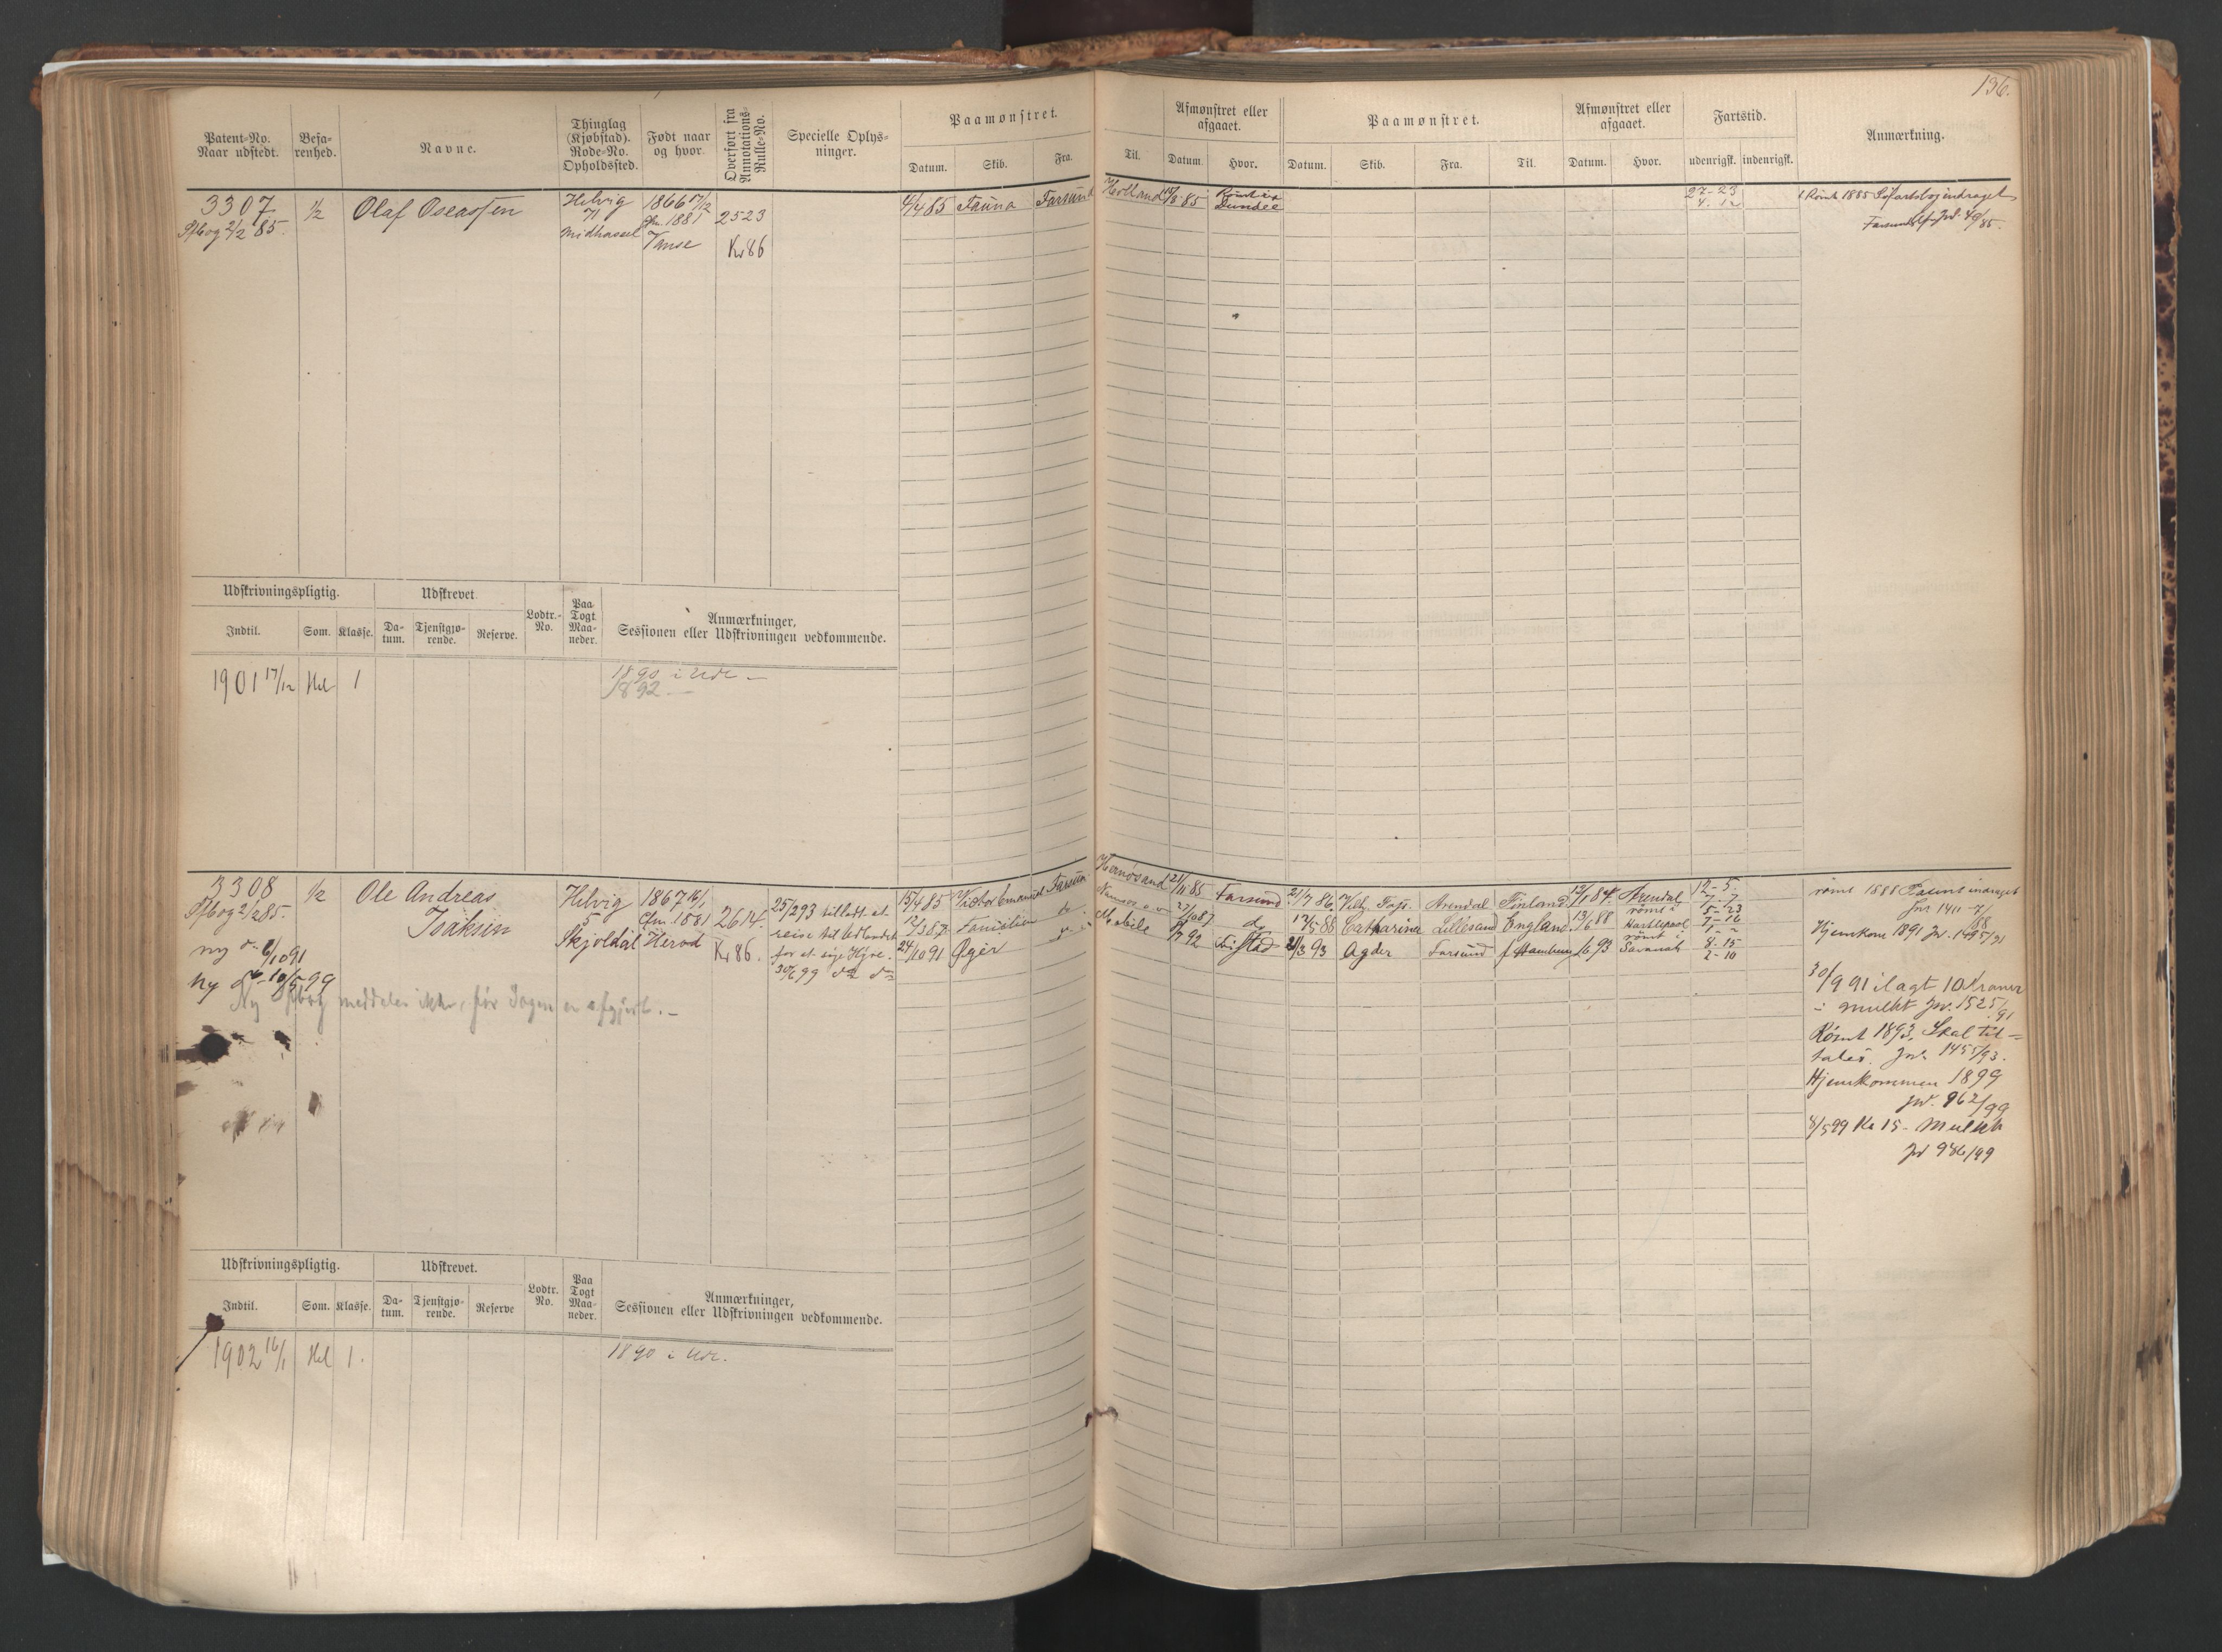 136.
Patent-No. Naar udstedt.
Befarenhed.
Navne.
Thinglag (Kjøbstad). Rode-No. Opholdssted.
Født naar og hvor.
Overført fra Annotations-Rulle-No.
Specielle Oplysninger.
Paamønstret.
Datum. Skib. Fra. Til.
Afmønstret eller afgaaet.
Datum. Hvor.
Paamønstret.
Datum. Skib. Fra. Til.
Afmønstret eller afgaaet.
Datum. Hvor.
Fartstid.
udenrigsk. indenrigsk.
Anmærkning.
3307
Sfbog 2/2 85.
1/2
Olaf Oseassen
Helvig
71
Midhassel
1866 17/12
Cfm. 1881
Vanse
2523
Kr 86
4/4 85 Fauna Farsund Holland 85
Dundee
27-23
Rømt 1885 Søfartsbog inddraget
Udskrivningspligtig.
Udskrevet.
Lodtr.-No.
Paa Togt Maaneder.
Anmærkninger, Sessionen eller Udskrivningen vedkommende.
Indtil. Som. Klasse. Datum. Tjenstgjørende. Reserve.
1901 17/12 Hel 1
1890 i Udl. -
1892 -
3308
Sfbog 2/2 85.
ny do 6/10 91
Ny do 10/5 99
1/2
Ole Andreas
Isaksen
Helvig
5
Skjoldal
1867 16/1
Cfm. 1881
Herod
2614.
Kr 86.
25/2 93 tilladt at
reise til Udlandet
for at søge Hyre.
30/6 99 do do
Ny Sfbog meddeles ikke, før Sagen er afgjort. -
15/4 85 Victor Emanuel Farsund Hernøsand 21/11 85 Farsund
12/3 87 Familien do 27/10 87 do
24/10 91 Øger do Mobile 92
21/7 86 Arendal Finland Arendal
12/5 88 Catharina Lillesand England 13/6 88 rømt i Hartlepool
93 Agder Farsund f Hamburg 93 rømt i Savanah
12-5-
7-7
5-23
7-16
8-15
2-10
rømt 1888
Hjemkom 1891
30/9 91 ilagt 10 Kroner
i mulkt Jvr. 1525/91
Rømt 1893, Skal til-
tales. Jvr. 1455/93.
Hjemkommen 1899
Jvr. 962/99
8/5 99 Kr 15 - Mulkt
Jvr 986/99
Udskrivningspligtig.
Udskrevet.
Lodtr. No.
Paa Togt Maaneder.
Anmærkninger, Sessionen eller Udskrivningen vedkommende.
Indtil. Som. Klasse. Datum. Tjenstgjørende. Reserve
1902 16/1 Hel 1.
1890 i Udl.